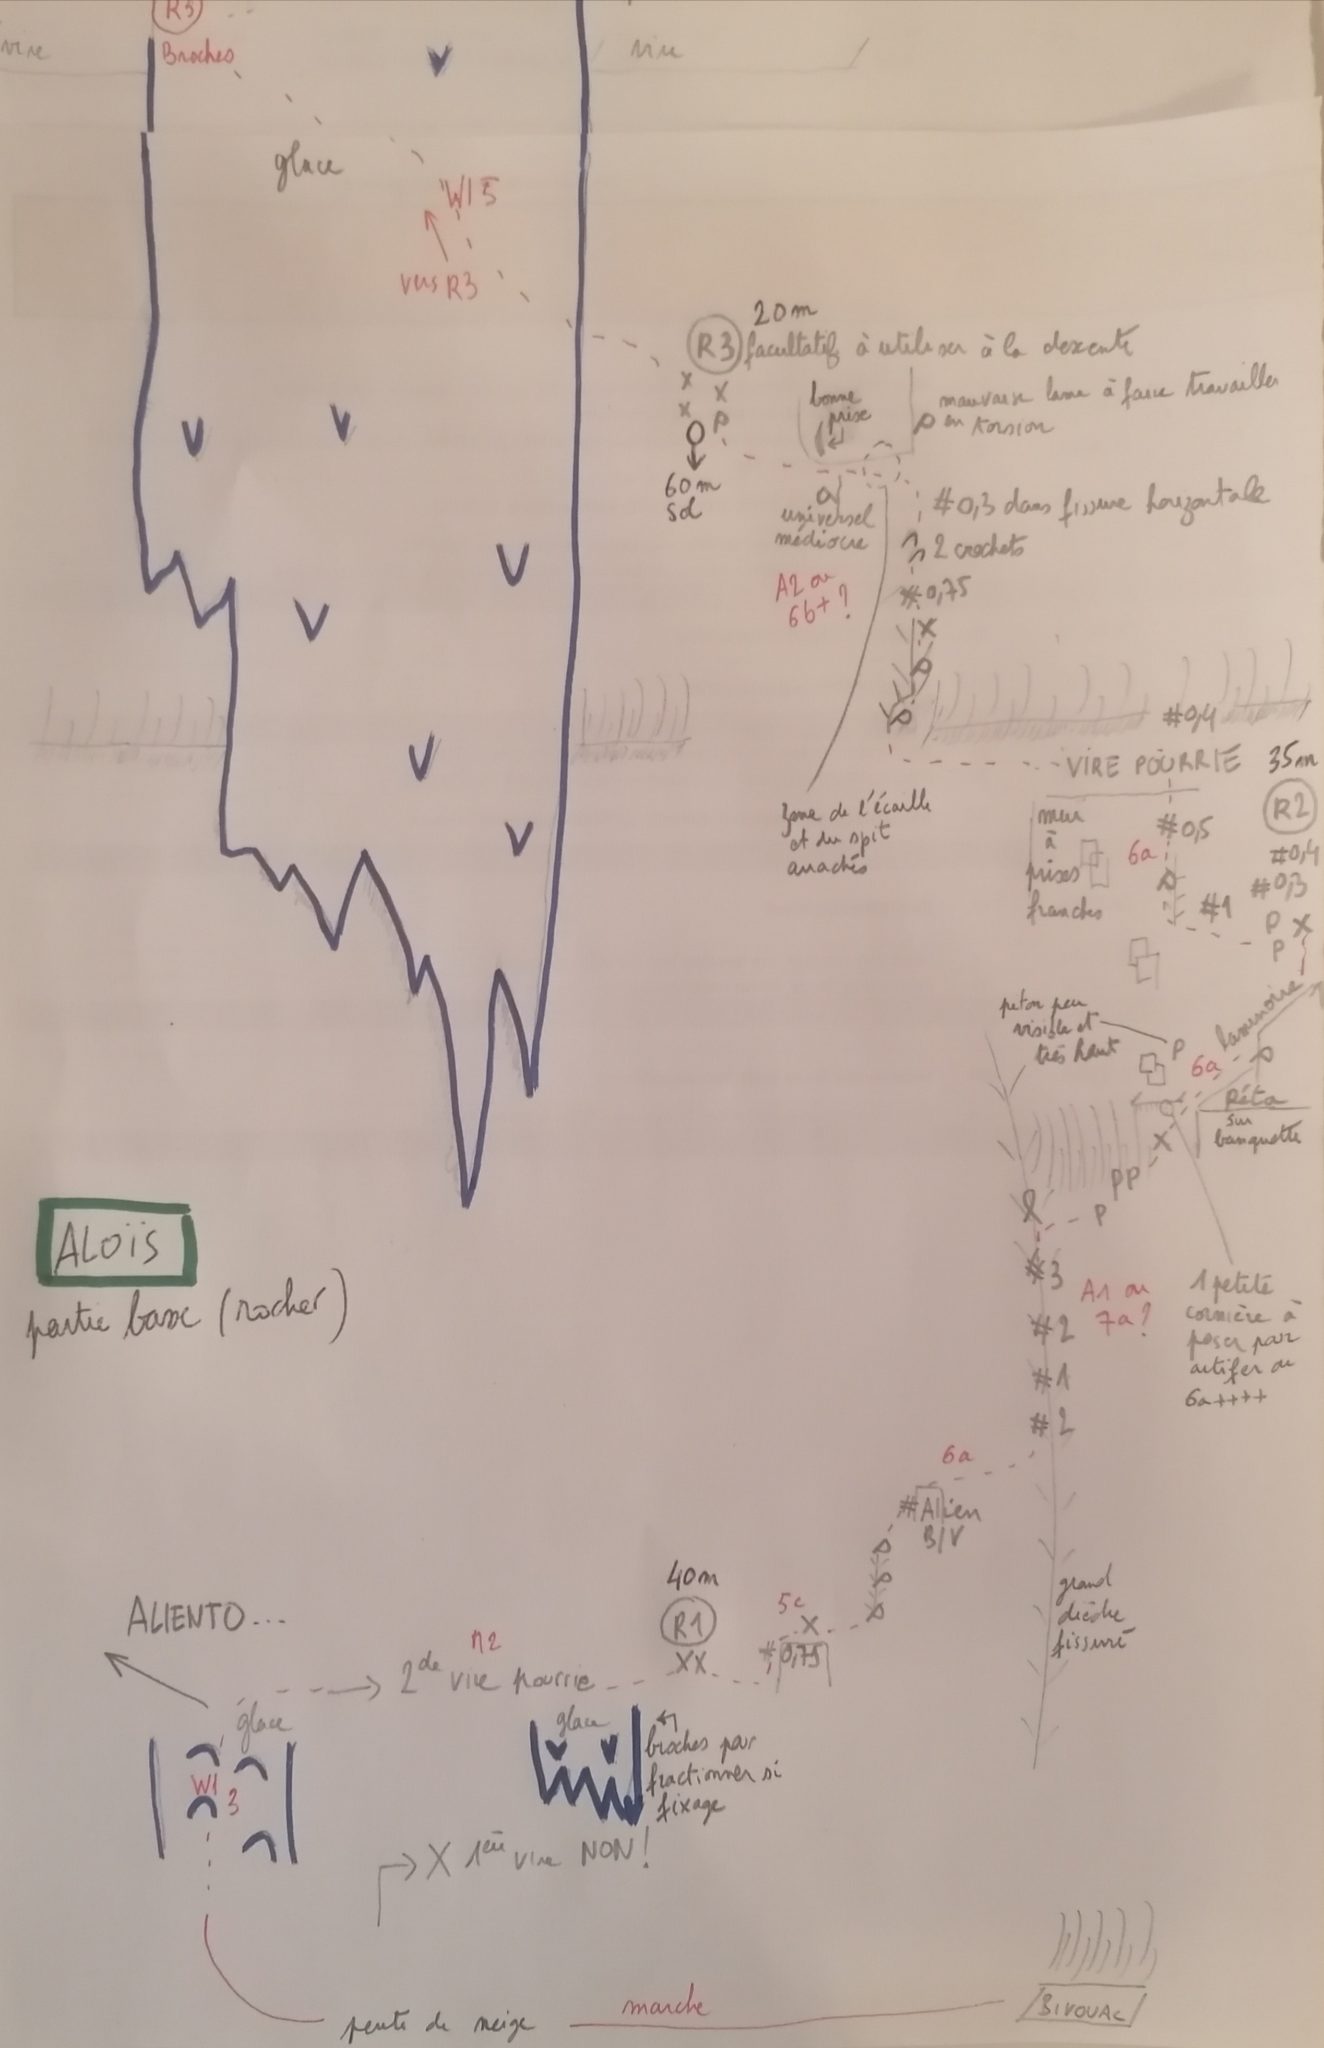 R3
Broches
vire
vire
glace
WI5
vers R3
20m
R3
facultatif à utiliser à la descente
bonne
prise
mauvaise lame à faire travailler
en torsion
P
60m
sol
universel
médiocre
#0,3 dans fissure horizontale
2 crochets
#0,75
A2 ou
6b+?
#0,4
VIRE POURRIE
35m
R2
mur
à
prises
franches
#0,5
6a
#0,4
#0,3
#1
P
P
zone de l'écaille
et du spit
arrachés
piton peu
visible et
très haut
P
laminoire
6a
Réta
sur
banquette
PP
P
ALOïS
partie basse (rocher)
#3
A1 ou
7a?
1 petite
cornière à
poser par
artifer ou
6a++++
#2
#1
#2
6a
#Alien
B/V
grand
dièdre
fissuré
40m
R1
XX
5c
#0,75
ALIENTO...
2de vire pourrie
glace
WI
3
glace
broches par
fractionner si
fixage
X 1ère vire NON!
pente de neige
marche
BIVOUAC